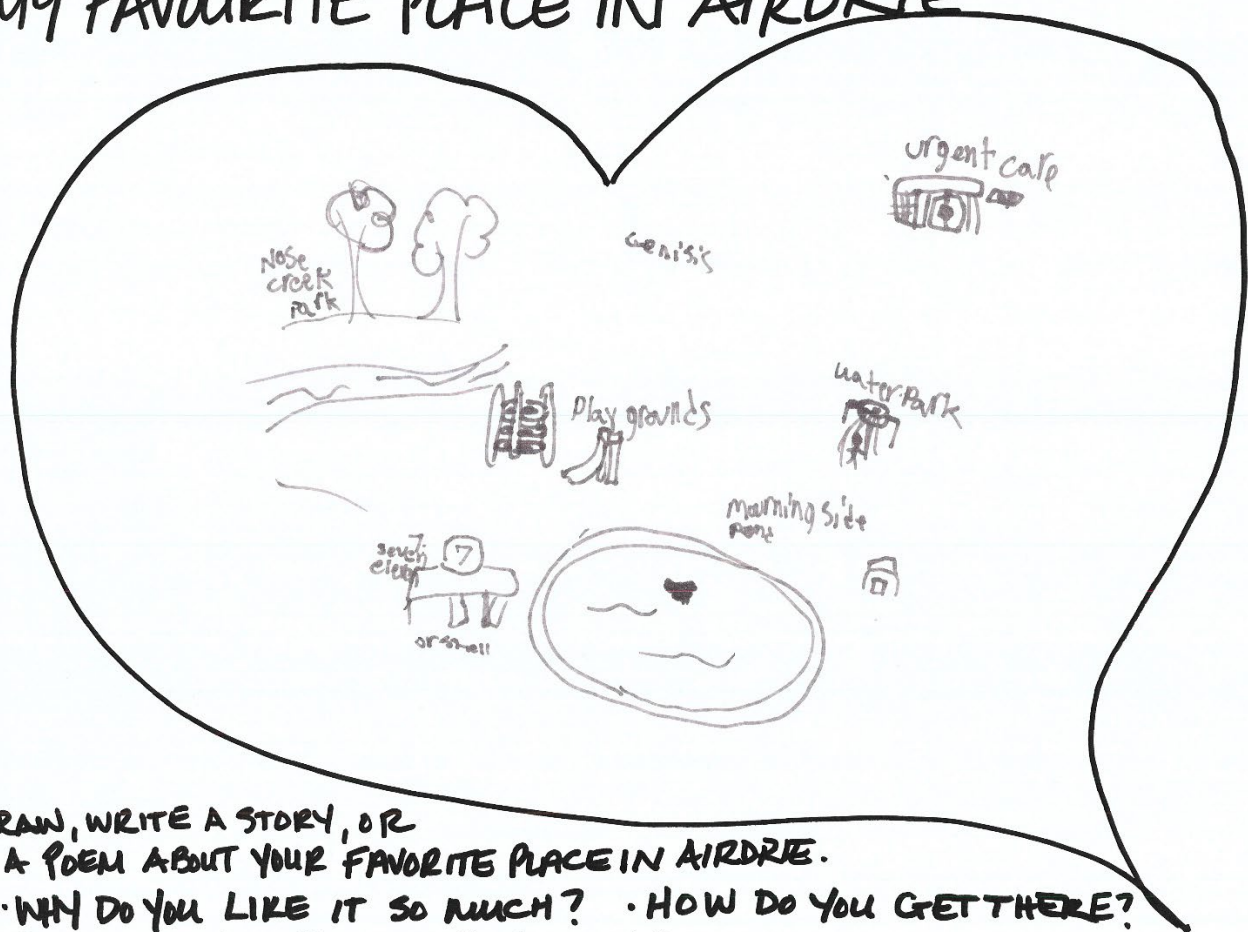 MY FAVOURITE PLACE IN AIRDRIE
urgent care
Genisis
Nose
creek
Park
water Park
Play grounds
morning side
Pond
seven
eleven
7
or shell
RAW, WRITE A STORY, OR
A POEM ABOUT YOUR FAVORITE PLACE IN AIRDRIE.
·WHY DO YOU LIKE IT SO MUCH? ·HOW DO YOU GET THERE?